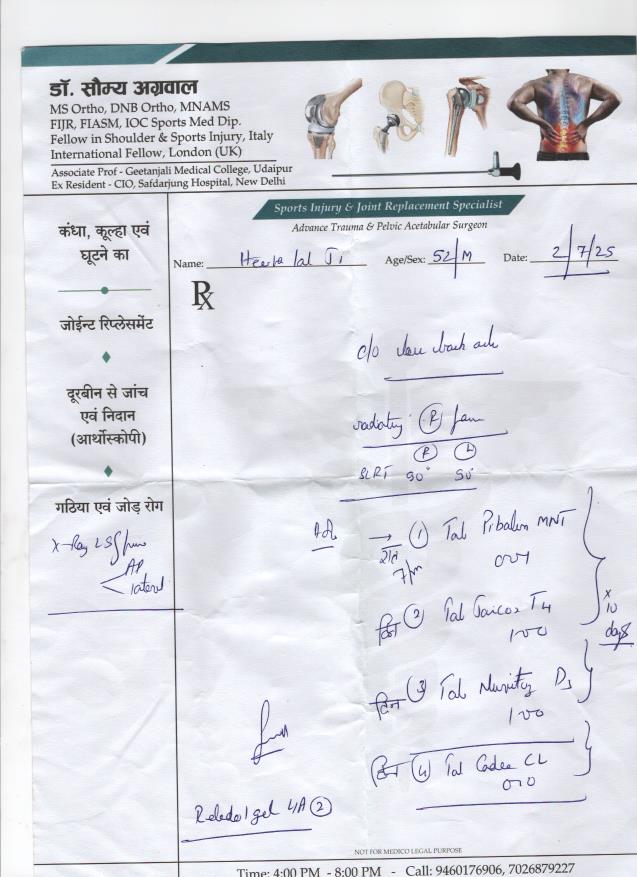 डॉ. सौम्य अग्रवाल
MS Ortho, DNB Ortho, MNAMS
FIJR, FIASM, IOC Sports Med Dip.
Fellow in Shoulder & Sports Injury, Italy
International Fellow, London (UK)
Associate Prof - Geetanjali Medical College, Udaipur
Ex Resident - CIO, Safdarjung Hospital, New Delhi
Sports Injury & Joint Replacement Specialist
Advance Trauma & Pelvic Acetabular Surgeon
Name: Heera lal Ji Age/Sex: 52/M Date: 2/7/25
Rx
कंधा, कूल्हा एवं
घूटने का
जोईन्ट रिप्लेसमेंट
दूरबीन से जांच
एवं निदान
(आर्थोस्कोपी)
गठिया एवं जोड़ रोग
X-Ray LS Spine
AP
lateral
c/o back ache
radiating (R)
(R) (L)
SLRT 90° 90°
Adv
→ (1) Tab MNT
रात 001
7pm
दिन (2) Tab T4
100
x 10 days
दिन (3) Tab D3
100
दिन (4) Tab CL
010
gel (2)
NOT FOR MEDICO LEGAL PURPOSE
Time: 4:00 PM - 8:00 PM - Call: 9460176906, 7026879227